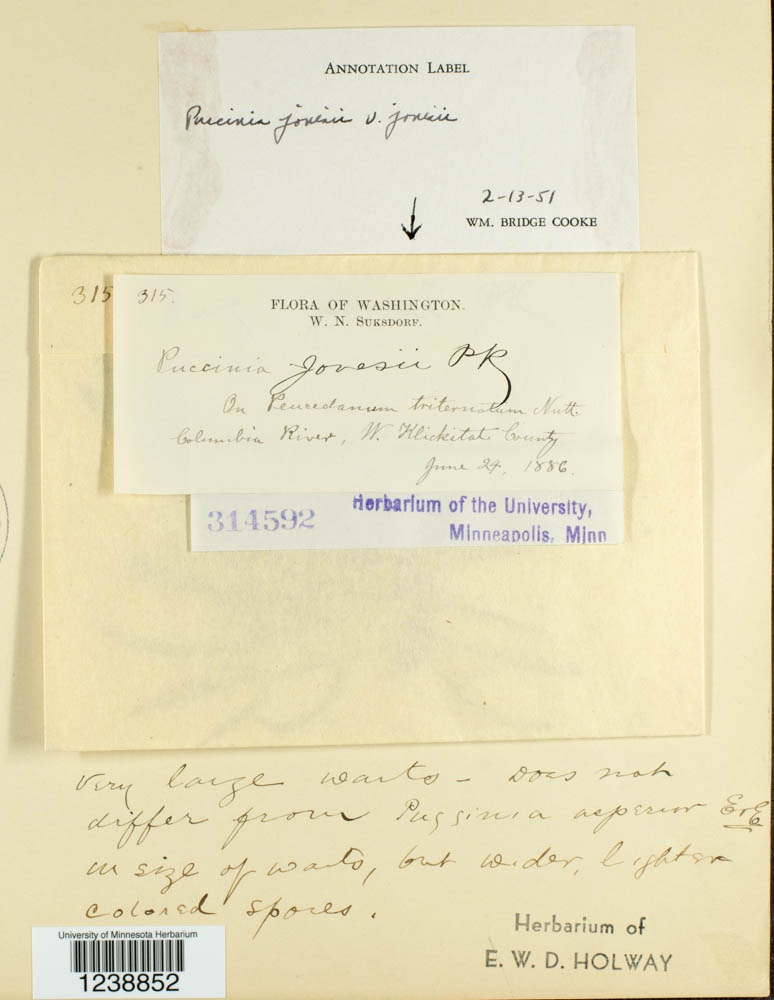 ANNOTATION LABEL
Puccinia jonesii v. jonesii
2-13-51
WM. BRIDGE COOKE
315
315.
FLORA OF WASHINGTON.
W. N. SUKSDORF.
Puccinia Jonesii PK
On Peucedanum triternatum Nutt.
Columbia River, W. Klickitat County
June 24, 1886.
314592
Herbarium of the University,
Minneapolis, Minn
Very large warts - Does not
differ from Puccinia asperior E&E
in size of warts, but wider, lighter
colored spores.
Herbarium of
E. W. D. HOLWAY
University of Minnesota Herbarium
1238852